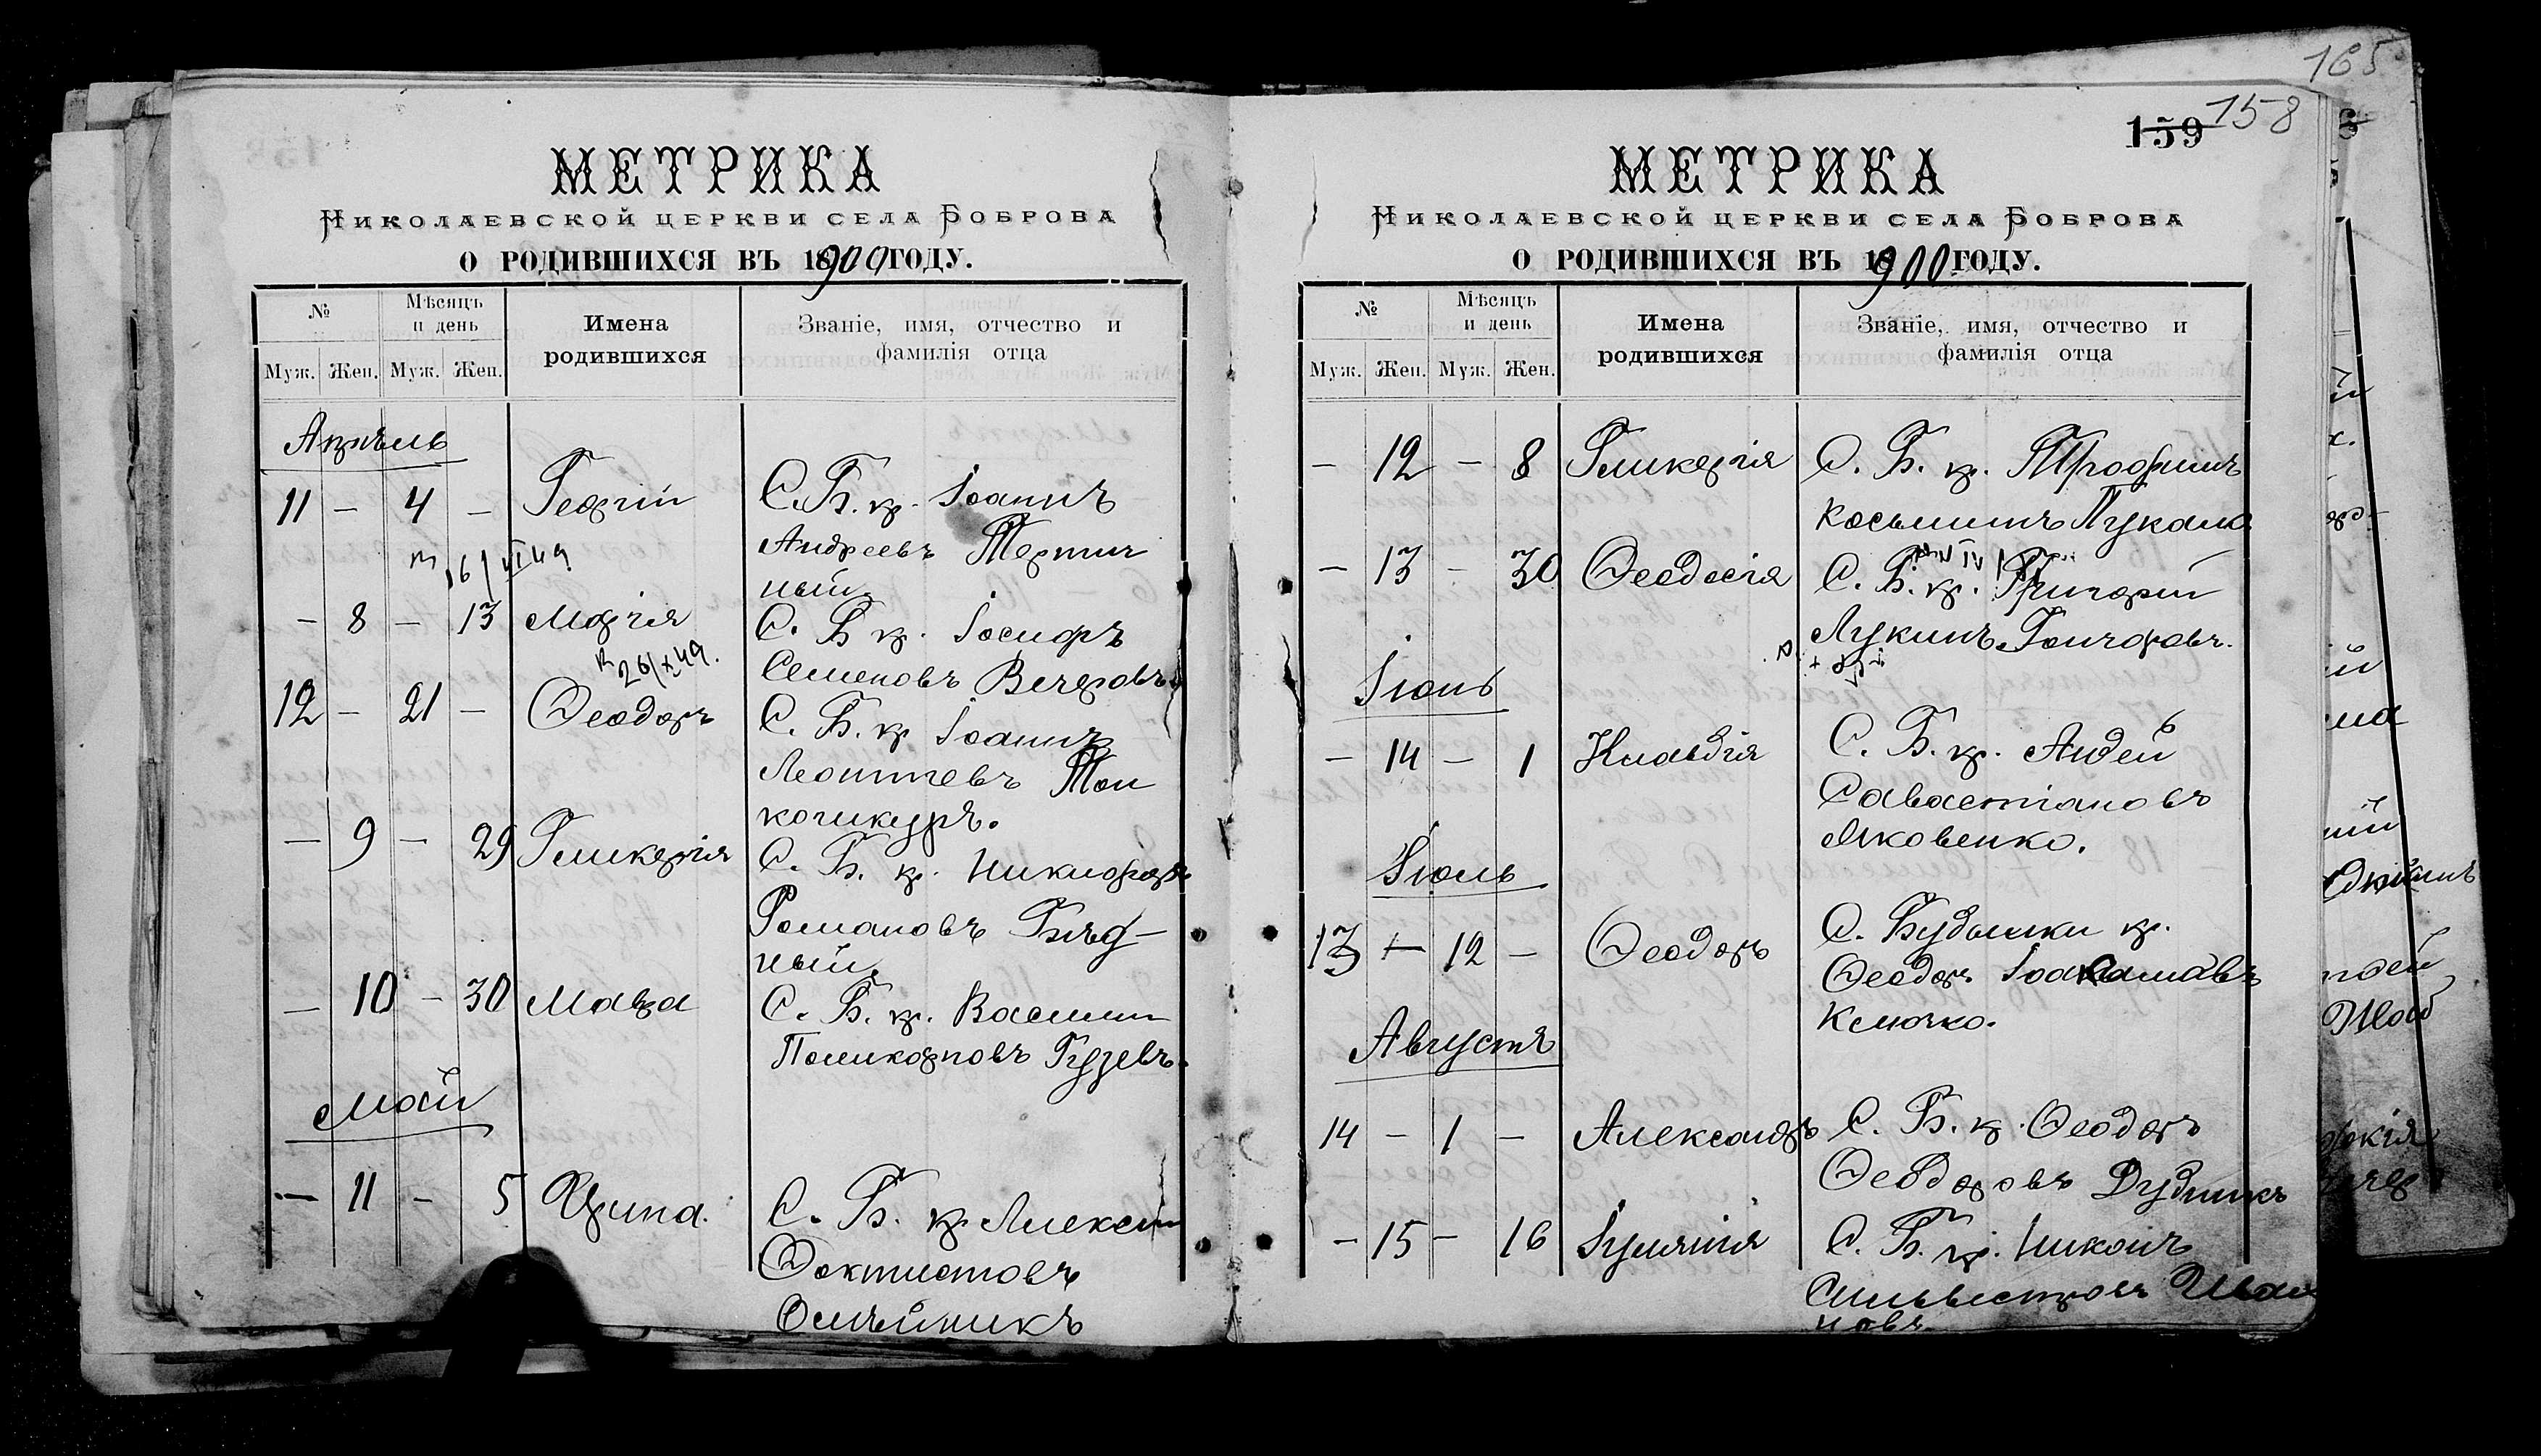 МЕТРИКА
НИКОЛАЕВСКОЙ ЦЕРКВИ СЕЛА БОБРОВА
О РОДИВШИХСЯ ВЪ 1900 ГОДУ.
№
Мѣсяцъ и день
Имена родившихся
Званіе, имя, отчество и фамилія отца
Муж. Жен. Муж. Жен.
Апрѣль
11 – 4 – Георгій С. Б. кр. Іоаннъ
Андреевъ Терпич
ный.
16/VI 49
– 8 – 13 Марія С. Б. кр. Іосифъ
Семеновъ Вечеровъ
26/X 49.
12 – 21 – Ѳеодоръ С. Б. кр. Іоаннъ
Леонтіевъ Тон
кошкуръ.
– 9 – 29 Гликерія С. Б. кр. Никифоръ
Романовъ Бѣд-
ный.
– 10 – 30 Мавра С. Б. кр. Василій
Поликарповъ Гузевъ.
Май
– 11 – 5 Ирина. С. Б. кр. Алексѣй
Ѳеоктистовъ
Олѣйникъ
165
159 158
МЕТРИКА
НИКОЛАЕВСКОЙ ЦЕРКВИ СЕЛА БОБРОВА
О РОДИВШИХСЯ ВЪ 1900 ГОДУ.
№
Мѣсяцъ и день
Имена родившихся
Званіе, имя, отчество и фамилія отца
Муж. Жен. Муж. Жен.
– 12 – 8 Гликерія С. Б. кр. Трофимъ
Косьминъ
– 13 – 30 Ѳеодосія С. Б. кр. Григорій
Лукинъ Гончаровъ.
Іюнь
– 14 – 1 Клавдія С. Б. кр. Андей
Савастіановъ
Яковенко.
Іюль
13 – 12 – Ѳеодоръ С. Будылки кр.
Ѳеодоръ
Клочко.
Августъ
14 – 1 – Александръ С. Б. кр. Ѳеодоръ
Ѳеодоровъ Дудникъ
– 15 – 16 Іуліянія С. Б. кр. Никонъ
Сильвестровъ Ива
новъ